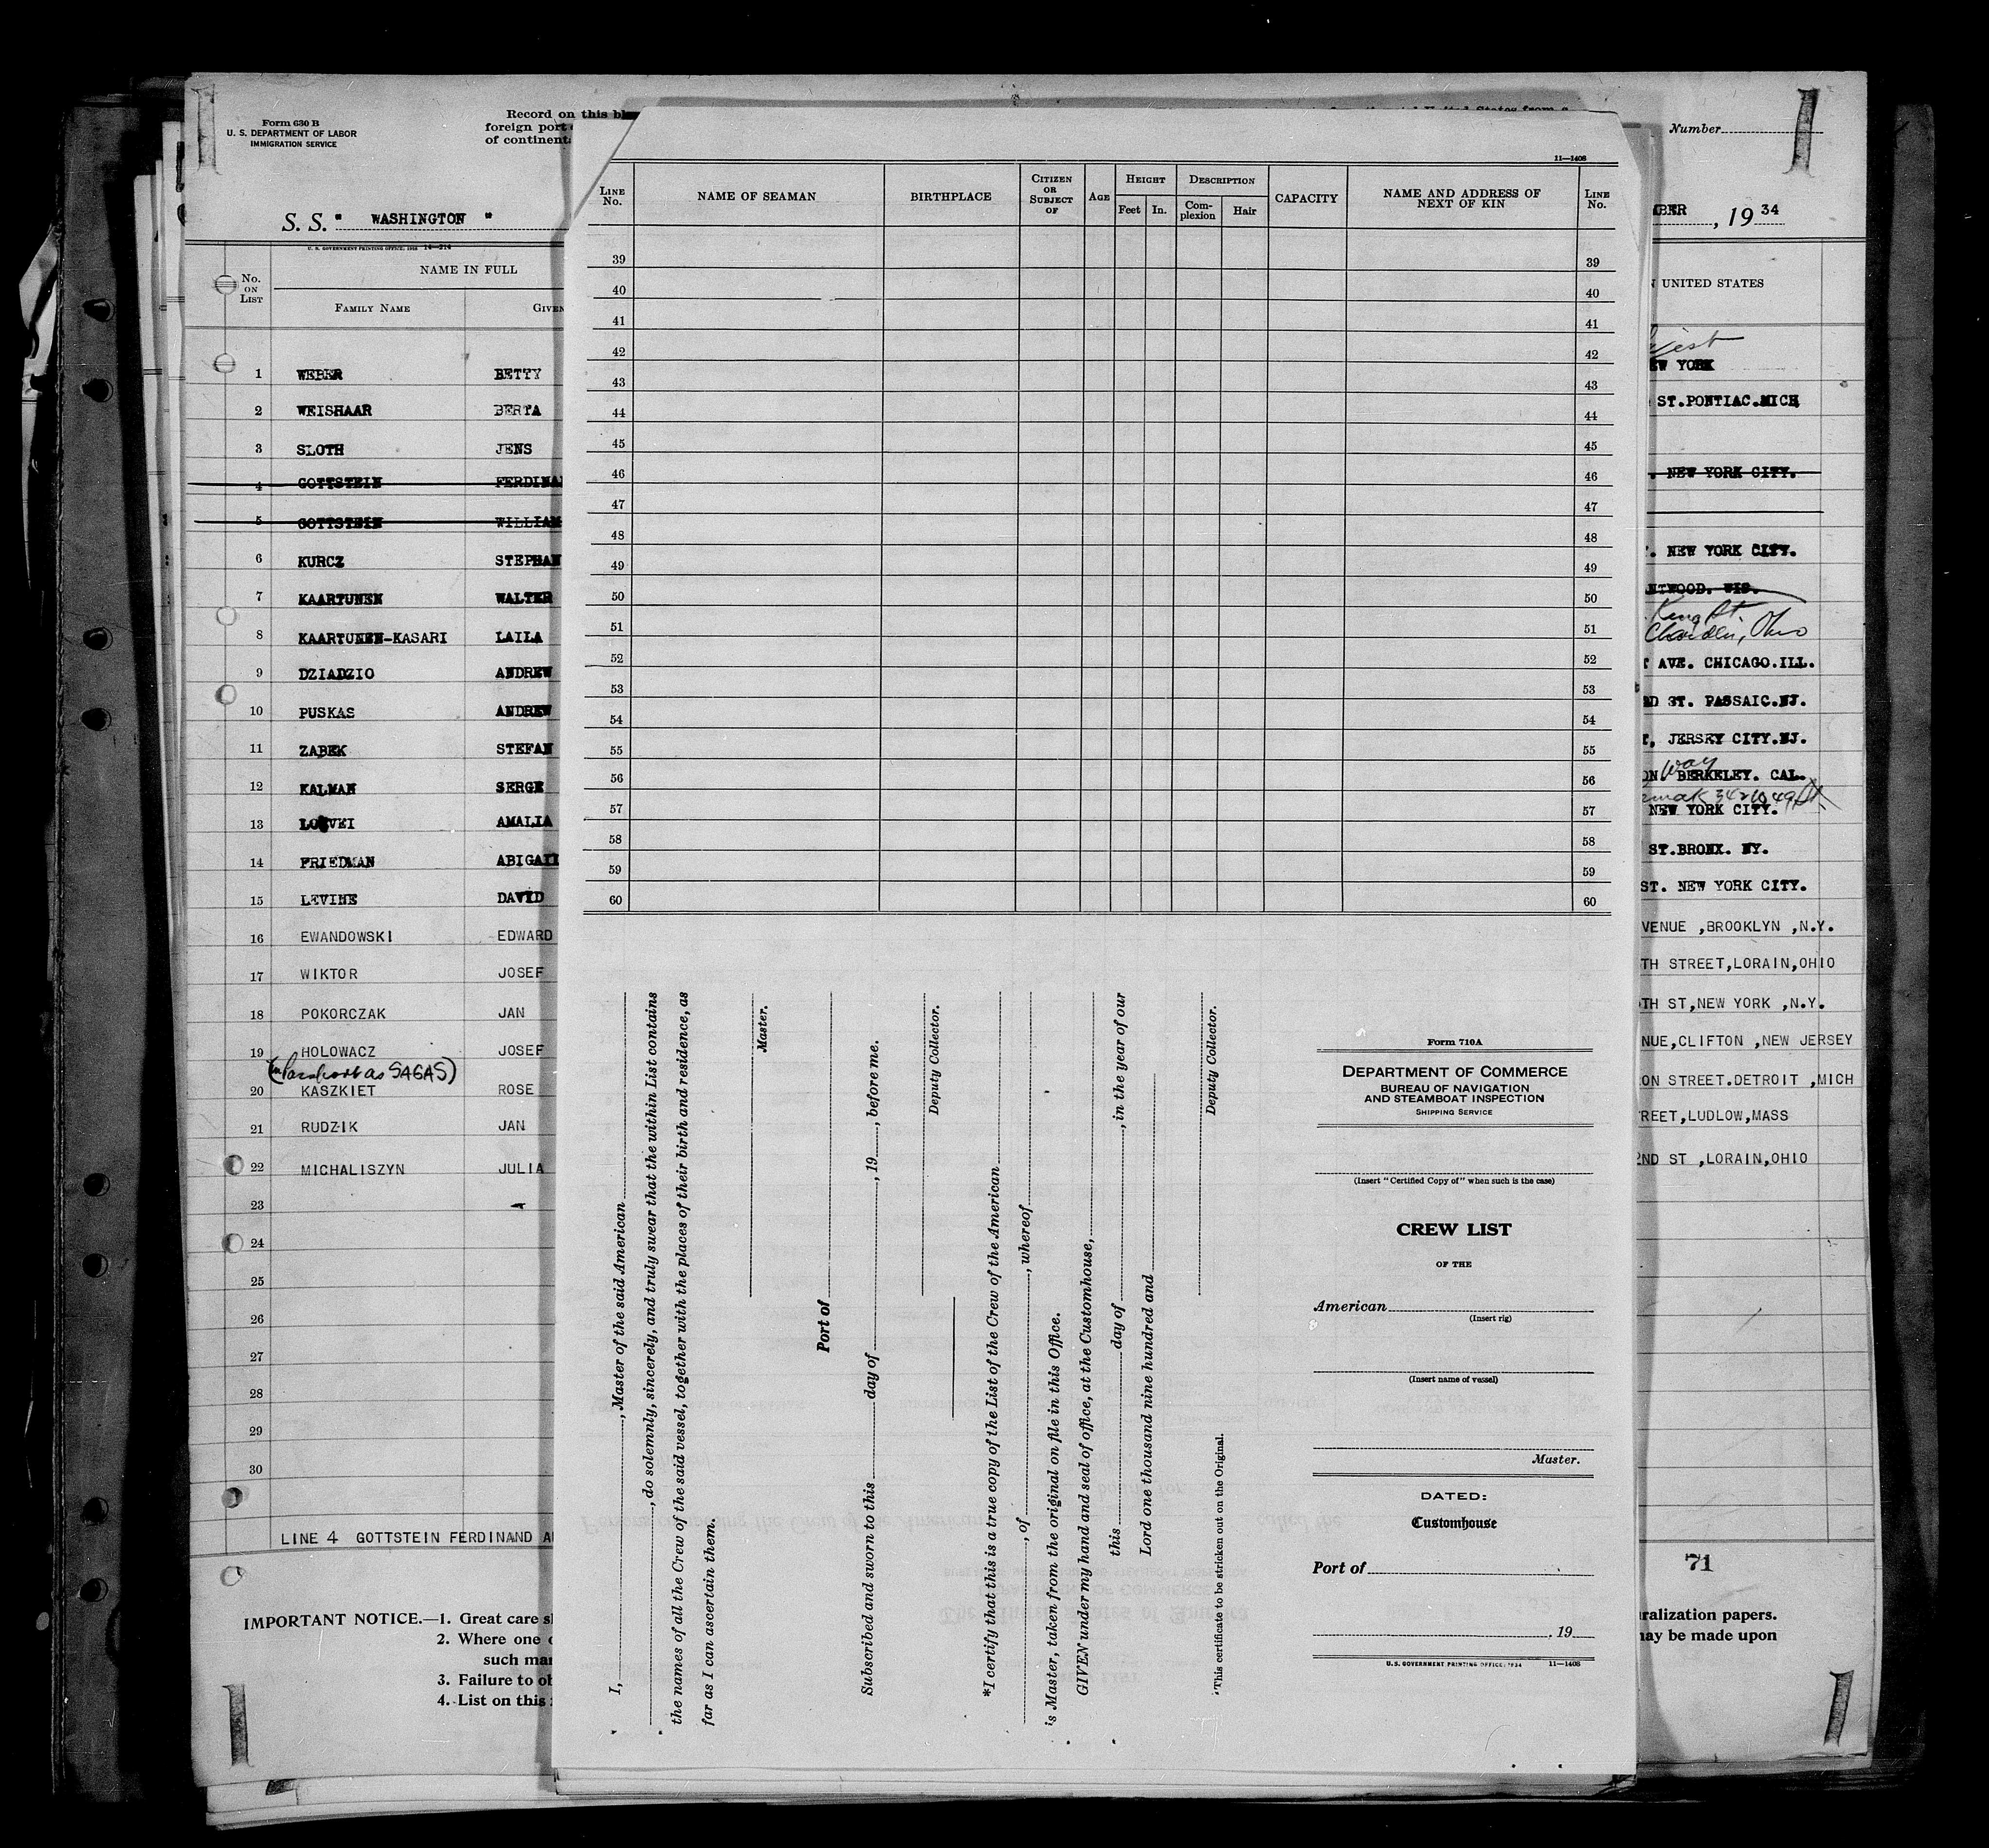 Form 630 B
U. S. DEPARTMENT OF LABOR
IMMIGRATION SERVICE
Record on this
foreign port
of continent
Number
S. S. " WASHINGTON "
MBER , 19 34
U. S. GOVERNMENT PRINTING OFFICE
No. ON LIST
NAME IN FULL
FAMILY NAME
GIVEN
UNITED STATES
1 WEBER BETTY
2 WEISHAAR BERTA
3 SLOTH JENS
4 GOTTSTEIN FERDINA
5 GOTTSTEIN WILLIAM
6 KURCZ STEPHAN
7 KAARTUNEN WALTER
8 KAARTUNEN-KASARI LAILA
9 DZIADZIO ANDREW
10 PUSKAS ANDREW
11 ZABEK STEFAN
12 KALMAN SERGE
13 AMALIA
14 FRIEDMAN ABIGAIL
15 LEVINE DAVID
16 EWANDOWSKI EDWARD
17 WIKTOR JOSEF
18 POKORCZAK JAN
19 HOLOWACZ JOSEF
(in Passport as SAGAS)
20 KASZKIET ROSE
21 RUDZIK JAN
22 MICHALISZYN JULIA
23
24
25
26
27
28
29
30
LINE 4 GOTTSTEIN FERDINAND A
IMPORTANT NOTICE.—1. Great care s
2. Where one
such ma
3. Failure to ob
4. List on this
EW YORK
ST.PONTIAC.MICH
. NEW YORK CITY.
. NEW YORK CITY.
NTWOOD. WIS.
Ohio
AVE. CHICAGO.ILL.
D ST. PASSAIC.NJ.
, JERSEY CITY.NJ.
way
ON BERKELEY. CAL.
NEW YORK CITY.
ST.BRONX. NY.
ST. NEW YORK CITY.
VENUE ,BROOKLYN ,N.Y.
TH STREET,LORAIN,OHIO
TH ST,NEW YORK ,N.Y.
NUE,CLIFTON ,NEW JERSEY
ON STREET.DETROIT ,MICH
REET,LUDLOW,MASS
2ND ST ,LORAIN,OHIO
71
ralization papers.
may be made upon
11—1408
LINE No.
NAME OF SEAMAN
BIRTHPLACE
CITIZEN OR SUBJECT OF
AGE
HEIGHT
Feet
In.
DESCRIPTION
Com-plexion
Hair
CAPACITY
NAME AND ADDRESS OF NEXT OF KIN
LINE No.
39 39
40 40
41 41
42 42
43 43
44 44
45 45
46 46
47 47
48 48
49 49
50 50
51 51
52 52
53 53
54 54
55 55
56 56
57 57
58 58
59 59
60 60
I, , Master of the said American
, do solemnly, sincerely, and truly swear that the within List contains
the names of all the Crew of the said vessel, together with the places of their birth and residence, as
far as I can ascertain them.
Master.
Port of
Subscribed and sworn to this day of , 19 , before me.
Deputy Collector.
*I certify that this is a true copy of the List of the Crew of the American
, of , whereof
is Master, taken from the original on file in this Office.
GIVEN under my hand and seal of office, at the Customhouse,
this day of , in the year of our
Lord one thousand nine hundred and
Deputy Collector.
*This certificate to be stricken out on the Original.
Form 710A
DEPARTMENT OF COMMERCE
BUREAU OF NAVIGATION
AND STEAMBOAT INSPECTION
SHIPPING SERVICE
(Insert "Certified Copy of" when such is the case)
CREW LIST
OF THE
American
(Insert rig)
(Insert name of vessel)
Master.
DATED:
Customhouse
Port of
, 19
U.S. GOVERNMENT PRINTING OFFICE: 1934 11—1408